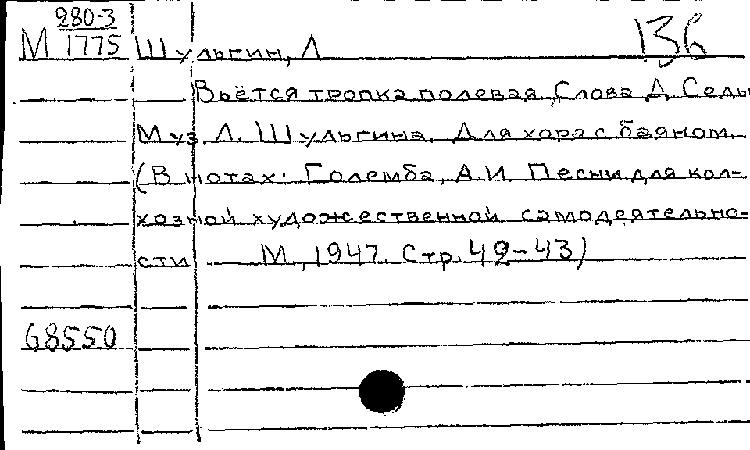 280-3
М 1775 Шульгин, Л 136
Вьётся тропка полевая. Слова Д. Седы
Муз. Л. Шульгина. Для хора с баяном.
(В нотах: Големба, А.И. Песни для кол-
хозной художественной самодеятельно-
сти М., 1947. Стр. 42-43)
68550